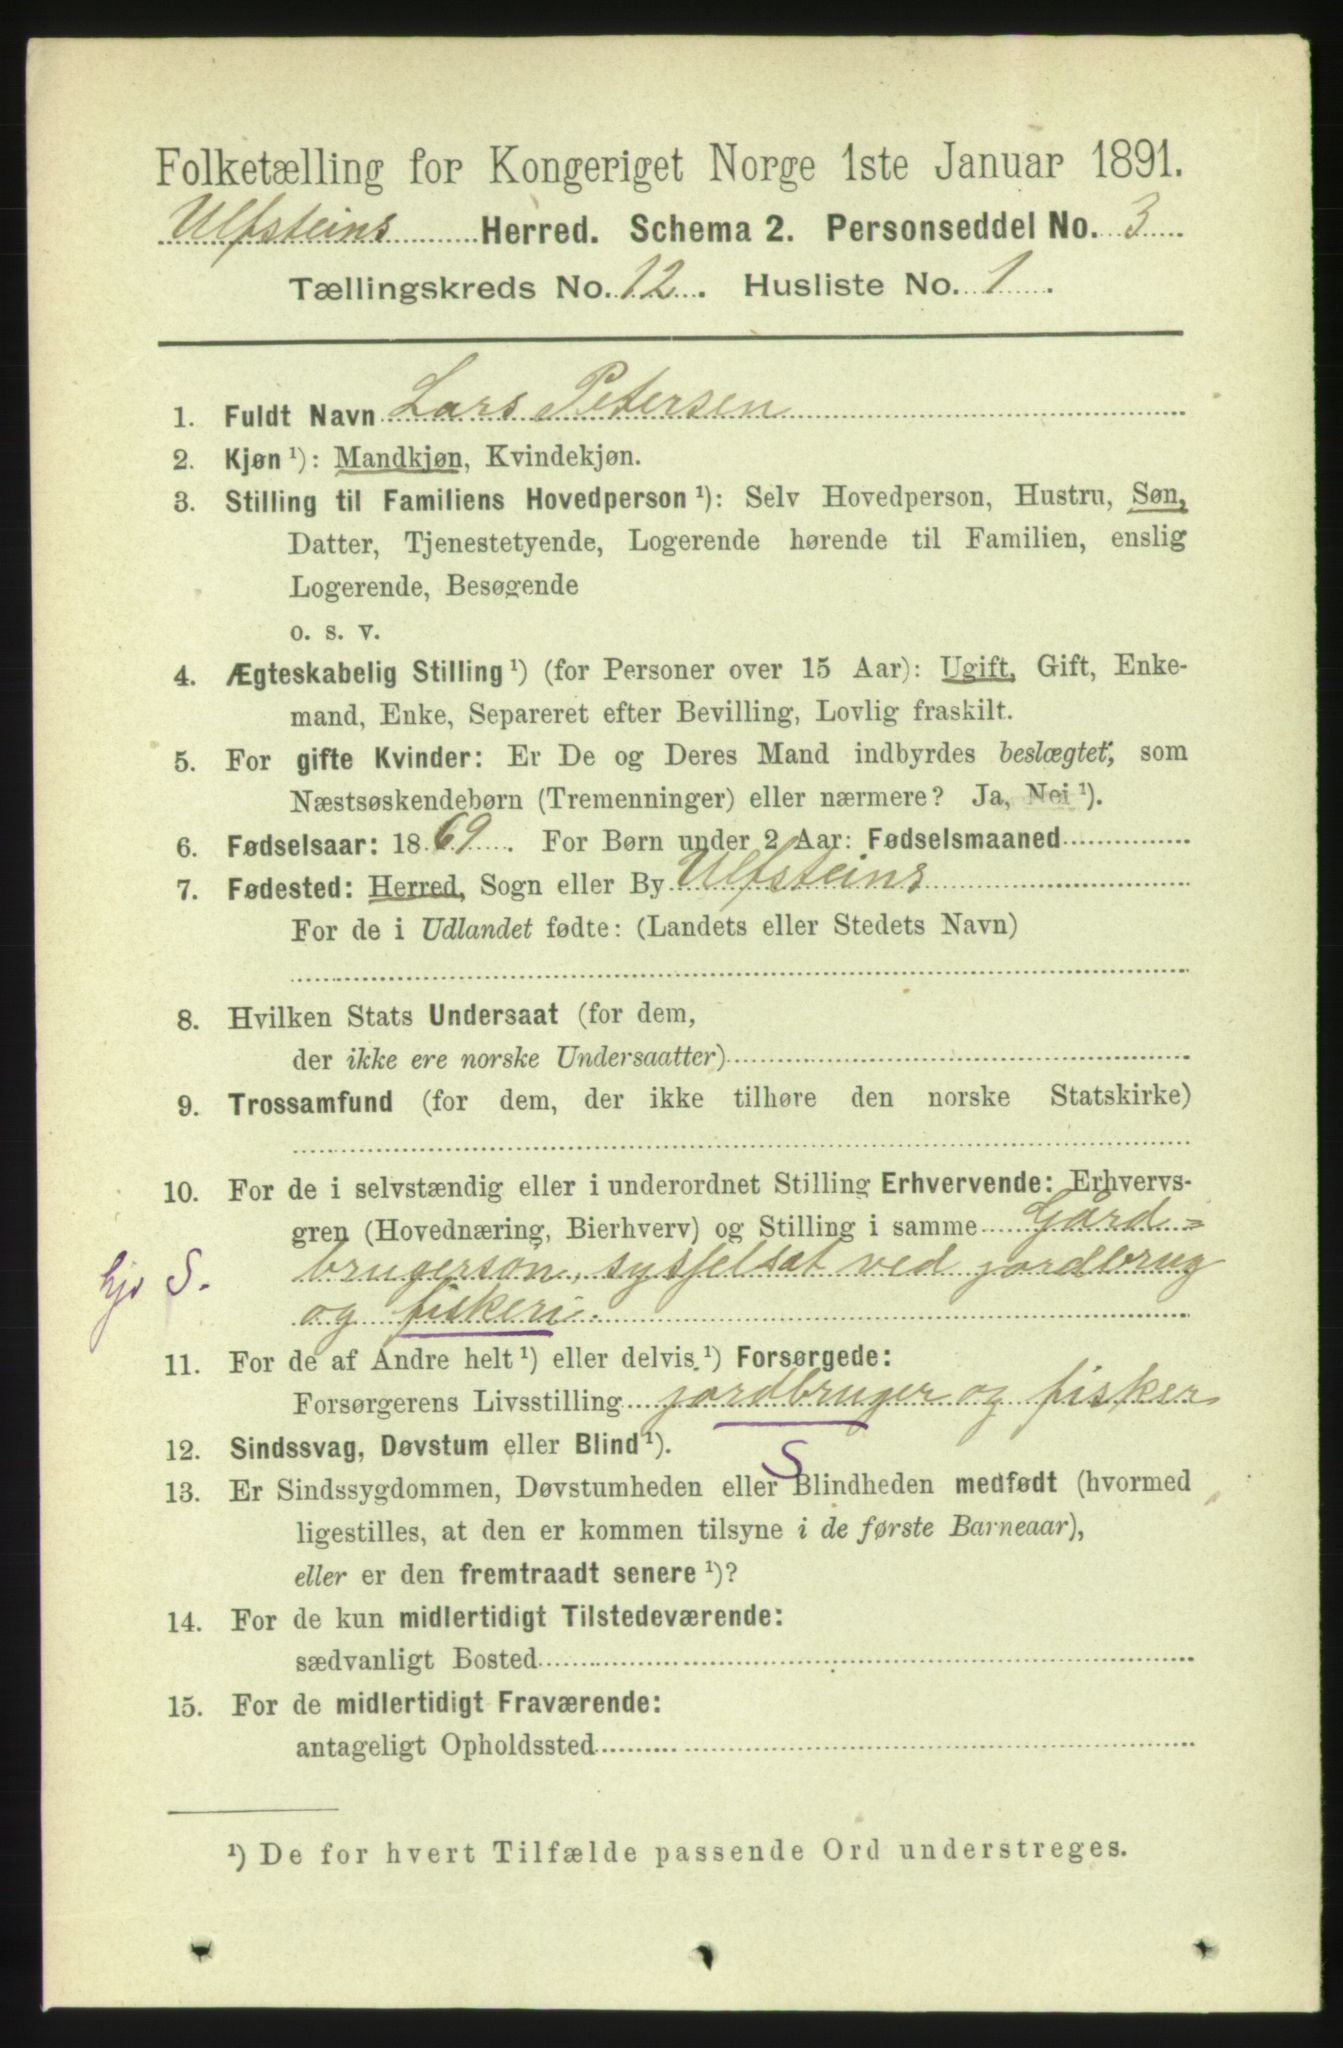 Folketælling for Kongeriget Norge 1ste Januar 1891.
Ulfsteins Herred. Schema 2. Personseddel No. 3
Tællingskreds No. 12. Husliste No. 1.
1. Fuldt Navn Lars Petersen
2. Kjøn ¹): Mandkjøn, Kvindekjøn.
3. Stilling til Familiens Hovedperson ¹): Selv Hovedperson, Hustru, Søn,
Datter, Tjenestetyende, Logerende hørende til Familien, enslig
Logerende, Besøgende
o. s. v.
4. Ægteskabelig Stilling ¹) (for Personer over 15 Aar): Ugift, Gift, Enke-
mand, Enke, Separeret efter Bevilling, Lovlig fraskilt.
5. For gifte Kvinder: Er De og Deres Mand indbyrdes beslægtet, som
Næstsøskendebørn (Tremenninger) eller nærmere? Ja, Nei ¹).
6. Fødselsaar: 1869. For Børn under 2 Aar: Fødselsmaaned
7. Fødested: Herred, Sogn eller By Ulfsteins
For de i Udlandet fødte: (Landets eller Stedets Navn)
8. Hvilken Stats Undersaat (for dem,
der ikke ere norske Undersaatter)
9. Trossamfund (for dem, der ikke tilhøre den norske Statskirke)
10. For de i selvstændig eller i underordnet Stilling Erhvervende: Erhvervs-
gren (Hovednæring, Bierhverv) og Stilling i samme Gård=
hjs S. brugersøn, sysselsat ved jordbrug
og fiskeri.
11. For de af Andre helt ¹) eller delvis ¹) Forsørgede:
Forsørgerens Livsstilling jordbruger og fisker
12. Sindssvag, Døvstum eller Blind ¹).
S
13. Er Sindssygdommen, Døvstumheden eller Blindheden medfødt (hvormed
ligestilles, at den er kommen tilsyne i de første Barneaar),
eller er den fremtraadt senere ¹)?
14. For de kun midlertidigt Tilstedeværende:
sædvanligt Bosted
15. For de midlertidigt Fraværende:
antageligt Opholdssted
¹) De for hvert Tilfælde passende Ord understreges.